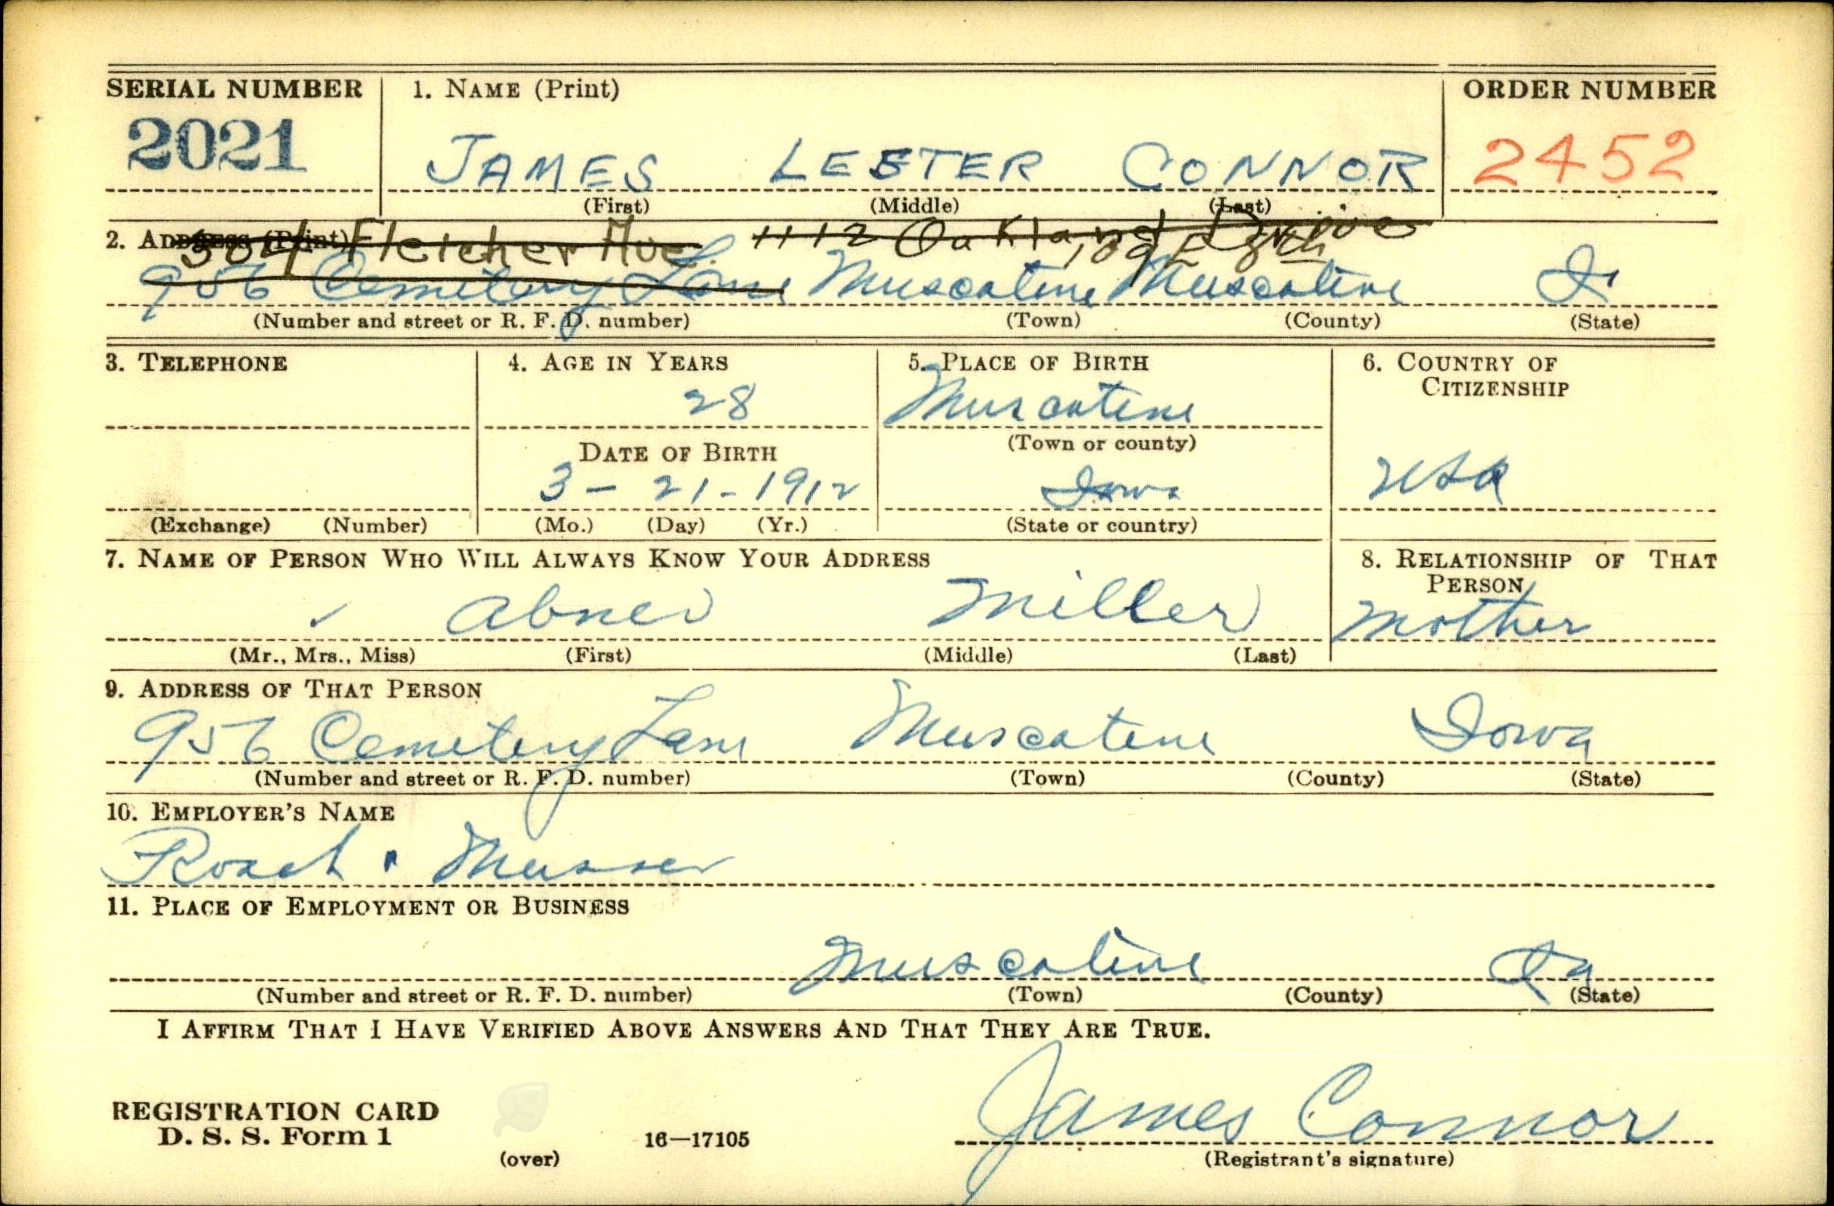 SERIAL NUMBER 1. NAME (Print) ORDER NUMBER
2021 JAMES LESTER CONNOR 2452
(First) (Middle) (Last)
304 Fletcher Ave. 1112 Oakland Drive
2. ADDRESS (Print) 109 E 8th
956 Cemetery Lane Muscatine Muscatine Ia
(Number and street or R. F. D. number) (Town) (County) (State)
3. TELEPHONE 4. AGE IN YEARS 5. PLACE OF BIRTH 6. COUNTRY OF
CITIZENSHIP
28 Muscatine
DATE OF BIRTH (Town or county)
3 - 21 - 1912 Iowa USA
(Exchange) (Number) (Mo.) (Day) (Yr.) (State or country)
7. NAME OF PERSON WHO WILL ALWAYS KNOW YOUR ADDRESS 8. RELATIONSHIP OF THAT
PERSON
Abner Miller Mother
(Mr., Mrs., Miss) (First) (Middle) (Last)
9. ADDRESS OF THAT PERSON
956 Cemetery Lane Muscatine Iowa
(Number and street or R. F. D. number) (Town) (County) (State)
10. EMPLOYER'S NAME
Roach & Musser
11. PLACE OF EMPLOYMENT OR BUSINESS
Muscatine Ia
(Number and street or R. F. D. number) (Town) (County) (State)
I AFFIRM THAT I HAVE VERIFIED ABOVE ANSWERS AND THAT THEY ARE TRUE.
REGISTRATION CARD James Connor
D. S. S. Form 1 16—17105
(over) (Registrant's signature)